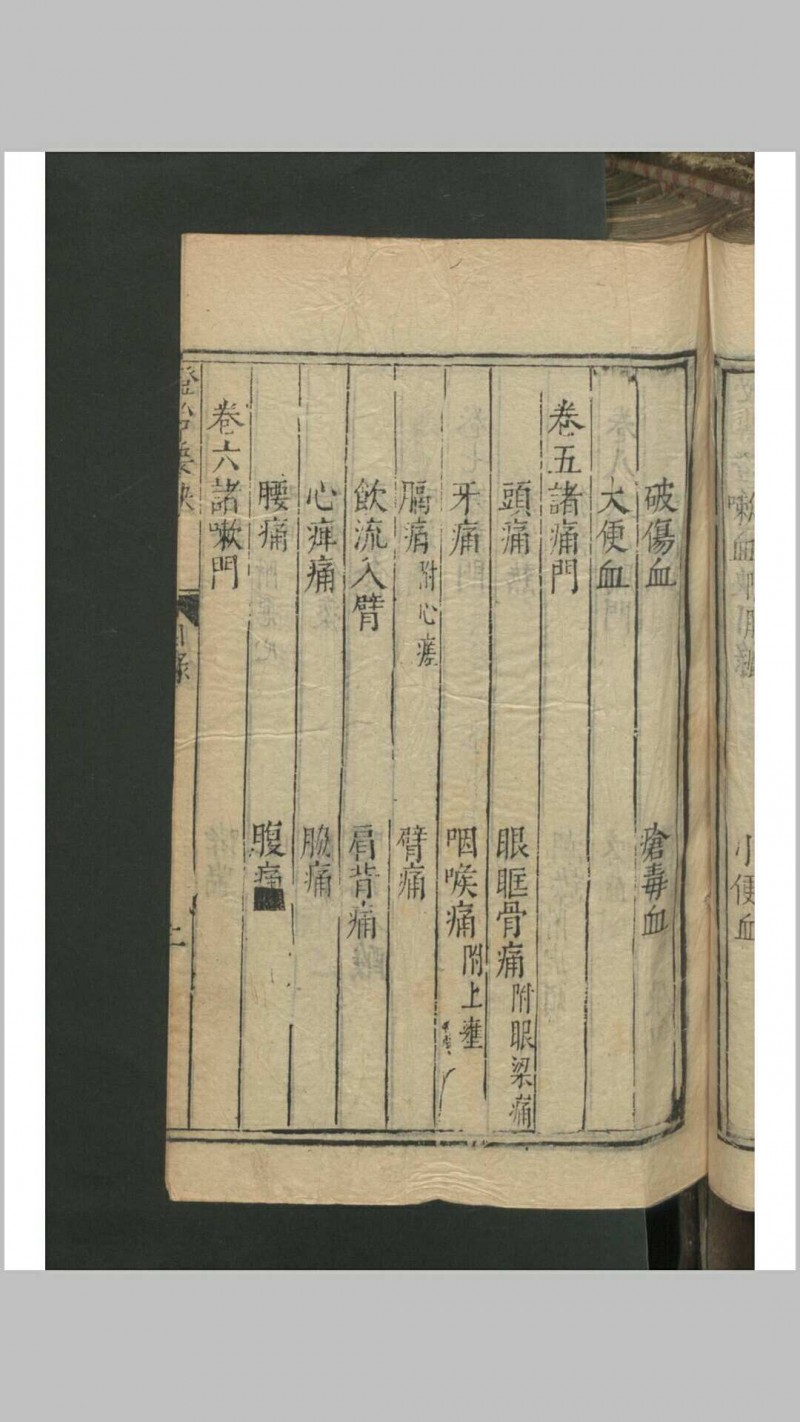 嗽血
小便血
破傷血 瘡毒血
大便血
卷五諸痛門
頭痛 眼眶骨痛附眼梁痛
牙痛 咽喉痛附上壅
膈痛附心瘥 臂痛
飲流入臂 肩背痛
心痺痛 脇痛
腰痛 腹痛
卷六諸嗽門
證治要訣 目錄 二